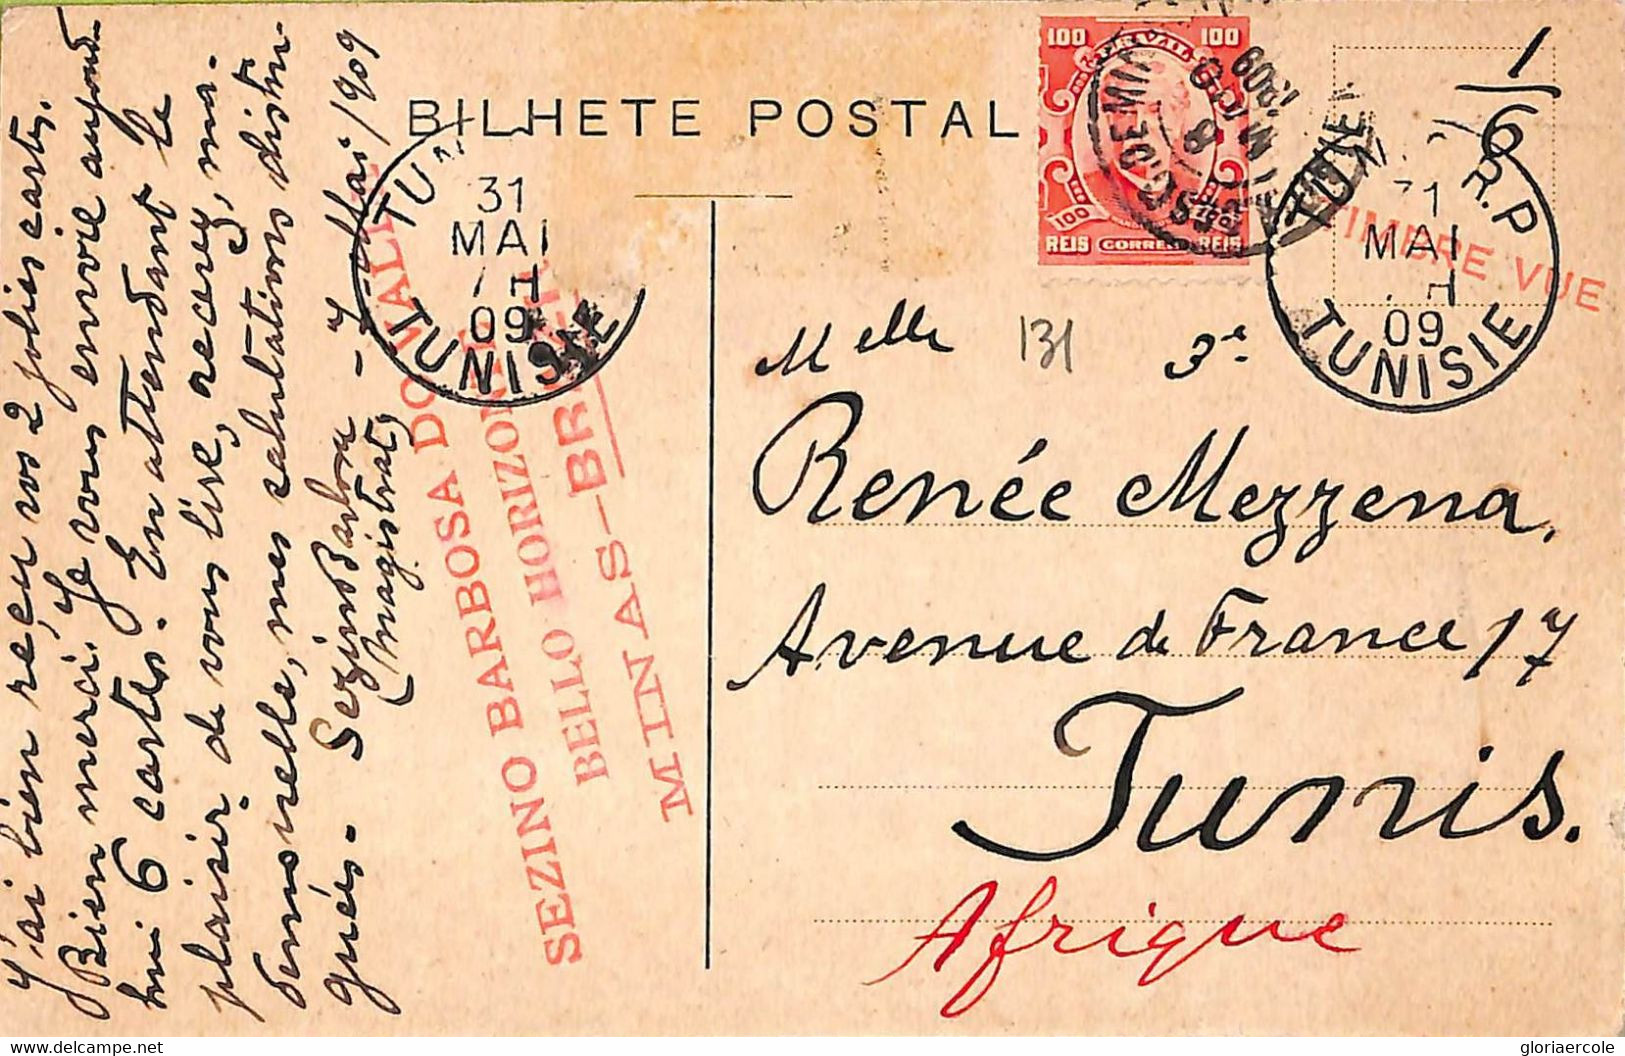 BILHETE POSTAL
100 BRAZIL 100
100
REIS CORREIO REIS
1/6
TUNIS R.P
31
MAI
09
TUNISIE
TIMBRE VUE
TUNIS
31
MAI
09
TUNISIE
SEZINO BARBOSA DO VALLE
BELLO HORIZONTE
MINAS—BRAZIL
J'ai bien reçu vos 2 jolies cartes,
Bien merci. Je vous envoie aujourd'
hui 6 cartes. En attendant le
plaisir de vous lire, recevez, ma-
demoiselle, mes salutations distin-
guées. Sezino Barbosa
(magistrat)
Mai/909
Melle 131 3e
Renée Mezzena,
Avenue de France 17
Tunis.
Afrique
delcampe.net
gloriaercole